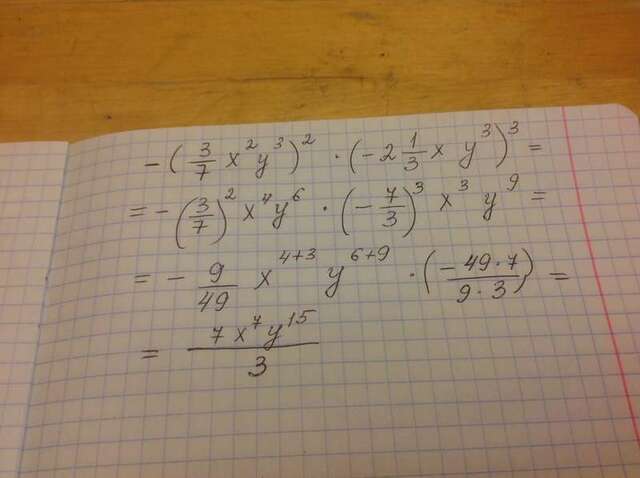 -(3/7 x² y³)² · (-2 1/3 x y³)³ =
= -(3/7)² x⁴ y⁶ · (-7/3)³ x³ y⁹ =
= - 9/49 x⁴⁺³ y⁶⁺⁹ · (-49·7 / 9·3) =
= 7x⁷y¹⁵ / 3